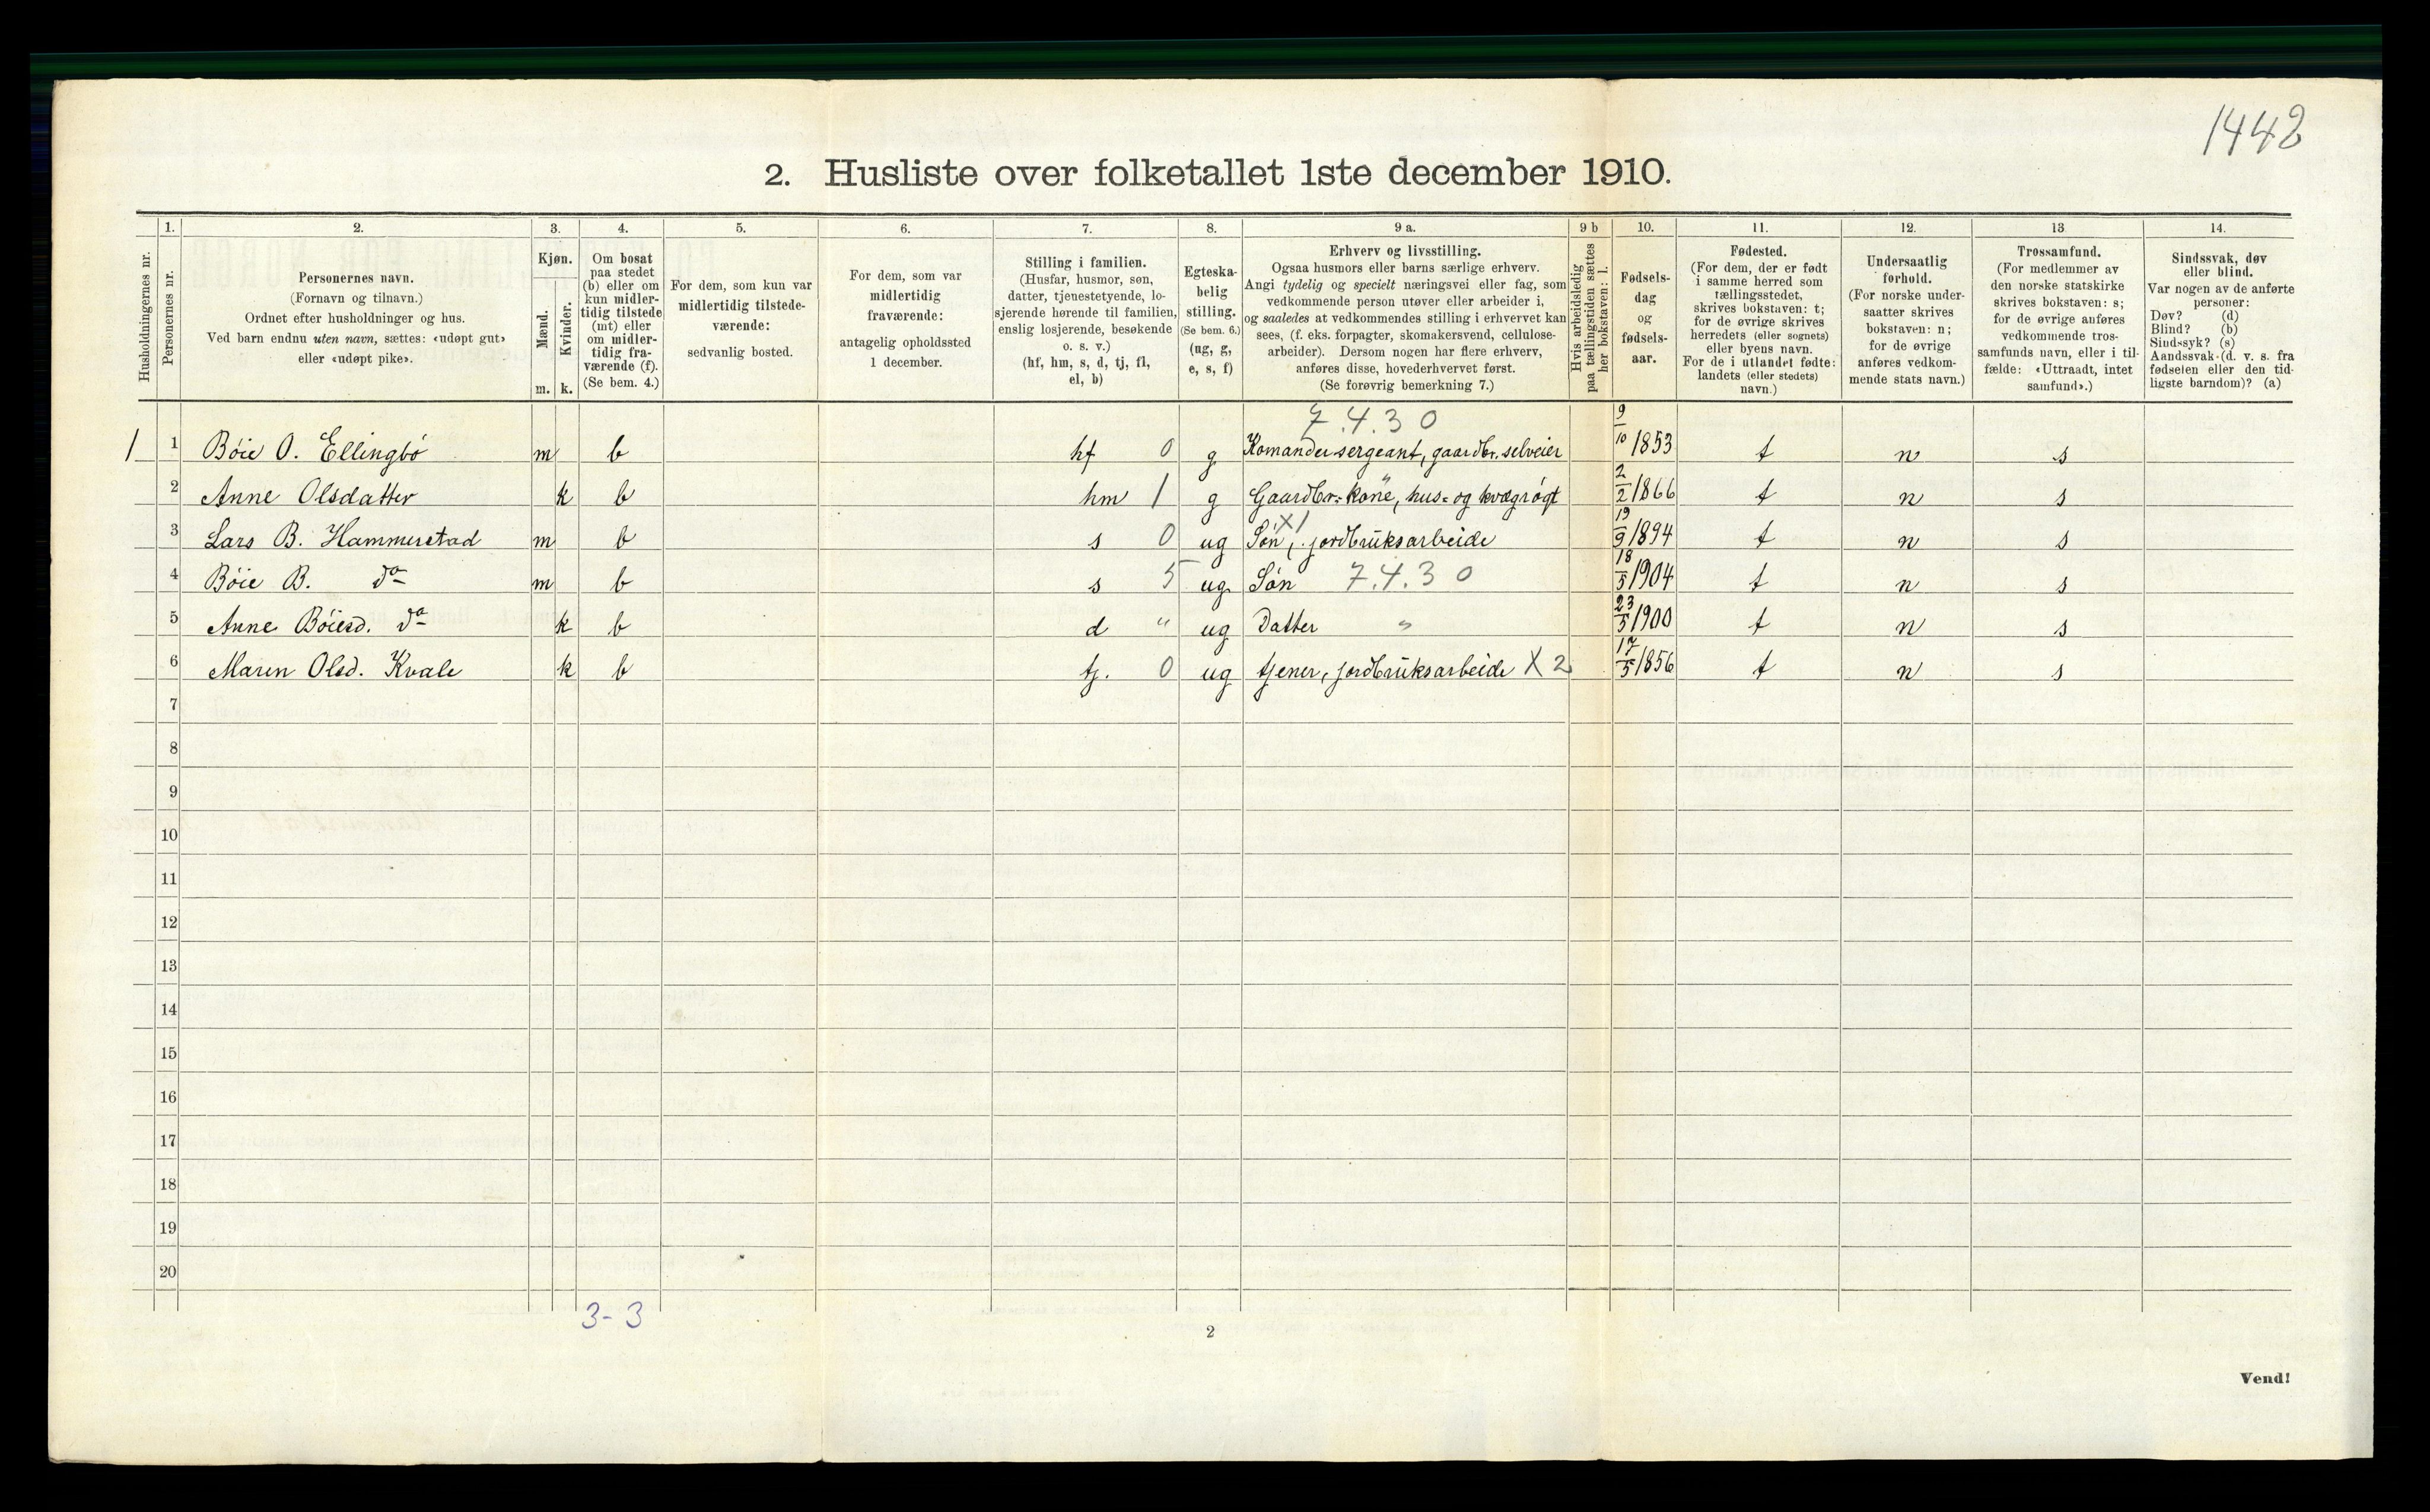 1442
2. Husliste over folketallet 1ste december 1910.
Husholdningernes nr.
1.
Personernes nr.
2.
Personernes navn.
(Fornavn og tilnavn.)
Ordnet efter husholdninger og hus.
Ved barn endnu uten navn, sættes: «udøpt gut»
eller «udøpt pike».
3.
Kjøn.
Mænd.
Kvinder.
m. k.
4.
Om bosat
paa stedet
(b) eller om
kun midler-
tidig tilstede
(mt) eller
om midler-
tidig fra-
værende (f).
(Se bem. 4.)
5.
For dem, som kun var
midlertidig tilstede-
værende:
sedvanlig bosted.
6.
For dem, som var
midlertidig
fraværende:
antagelig opholdssted
1 december.
7.
Stilling i familien.
(Husfar, husmor, søn,
datter, tjenestetyende, lo-
sjerende hørende til familien,
enslig losjerende, besøkende
o. s. v.)
(hf, hm, s, d, tj, fl,
el, b)
8.
Egteska-
belig
stilling.
(Se bem. 6.)
(ug, g,
e, s, f)
9 a.
Erhverv og livsstilling.
Ogsaa husmors eller barns særlige erhverv.
Angi tydelig og specielt næringsvei eller fag, som
vedkommende person utøver eller arbeider i,
og saaledes at vedkommendes stilling i erhvervet kan
sees, (f. eks. forpagter, skomakersvend, cellulose-
arbeider). Dersom nogen har flere erhverv,
anføres disse, hovederhvervet først.
(Se forøvrig bemerkning 7.)
9 b
Hvis arbeidsledig
paa tællingstiden sættes
her bokstaven: l.
10.
Fødsels-
dag
og
fødsels-
aar.
11.
Fødested.
(For dem, der er født
i samme herred som
tællingsstedet,
skrives bokstaven: t;
for de øvrige skrives
herredets (eller sognets)
eller byens navn.
For de i utlandet fødte:
landets (eller stedets)
navn.)
12.
Undersaatlig
forhold.
(For norske under-
saatter skrives
bokstaven: n;
for de øvrige
anføres vedkom-
mende stats navn.)
13
Trossamfund.
(For medlemmer av
den norske statskirke
skrives bokstaven: s;
for de øvrige anføres
vedkommende tros-
samfunds navn, eller i til-
fælde: «Uttraadt, intet
samfund».)
14.
Sindssvak, døv
eller blind.
Var nogen av de anførte
personer:
Døv? (d)
Blind? (b)
Sindssyk? (s)
Aandssvak (d. v. s. fra
fødselen eller den tid-
ligste barndom)? (a)
7.4.30
1 1 Bøie O. Ellingbø m b hf 0 g Komandersergeant, gaardbr. selveier 9/10 1853 t n s
2 Anne Olsdatter k b hm 1 g Gaardbr.-kone, hus- og kvægrøgt 2/2 1866 t n s
X1
3 Lars B. Hammerstad m b s 0 ug Søn, jordbruksarbeide 19/9 1894 t n s
4 Bøie B. do m b s 5 ug Søn 7.4.30 18/5 1904 t n s
5 Anne Bøiesd. do k b d " ug Datter " 23/5 1900 t n s
6 Maren Olsd. Kvale k b tj. 0 ug tjener, jordbruksarbeide X 2 17/5 1856 t n s
7
8
9
10
11
12
13
14
15
16
17
18
19
20
3-3
2
Vend!